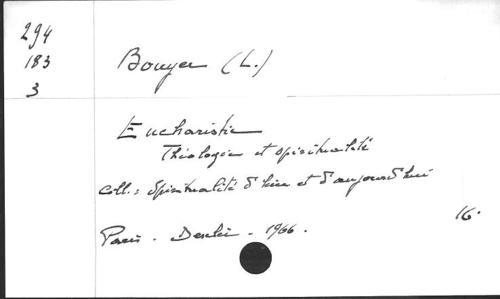 294
183
3
Bouyer (L.)
Eucharistie
Théologie et spiritualité
coll.: Spiritualité d'hier et d'aujourd'hui
16.
Paris - Desclée - 1966.